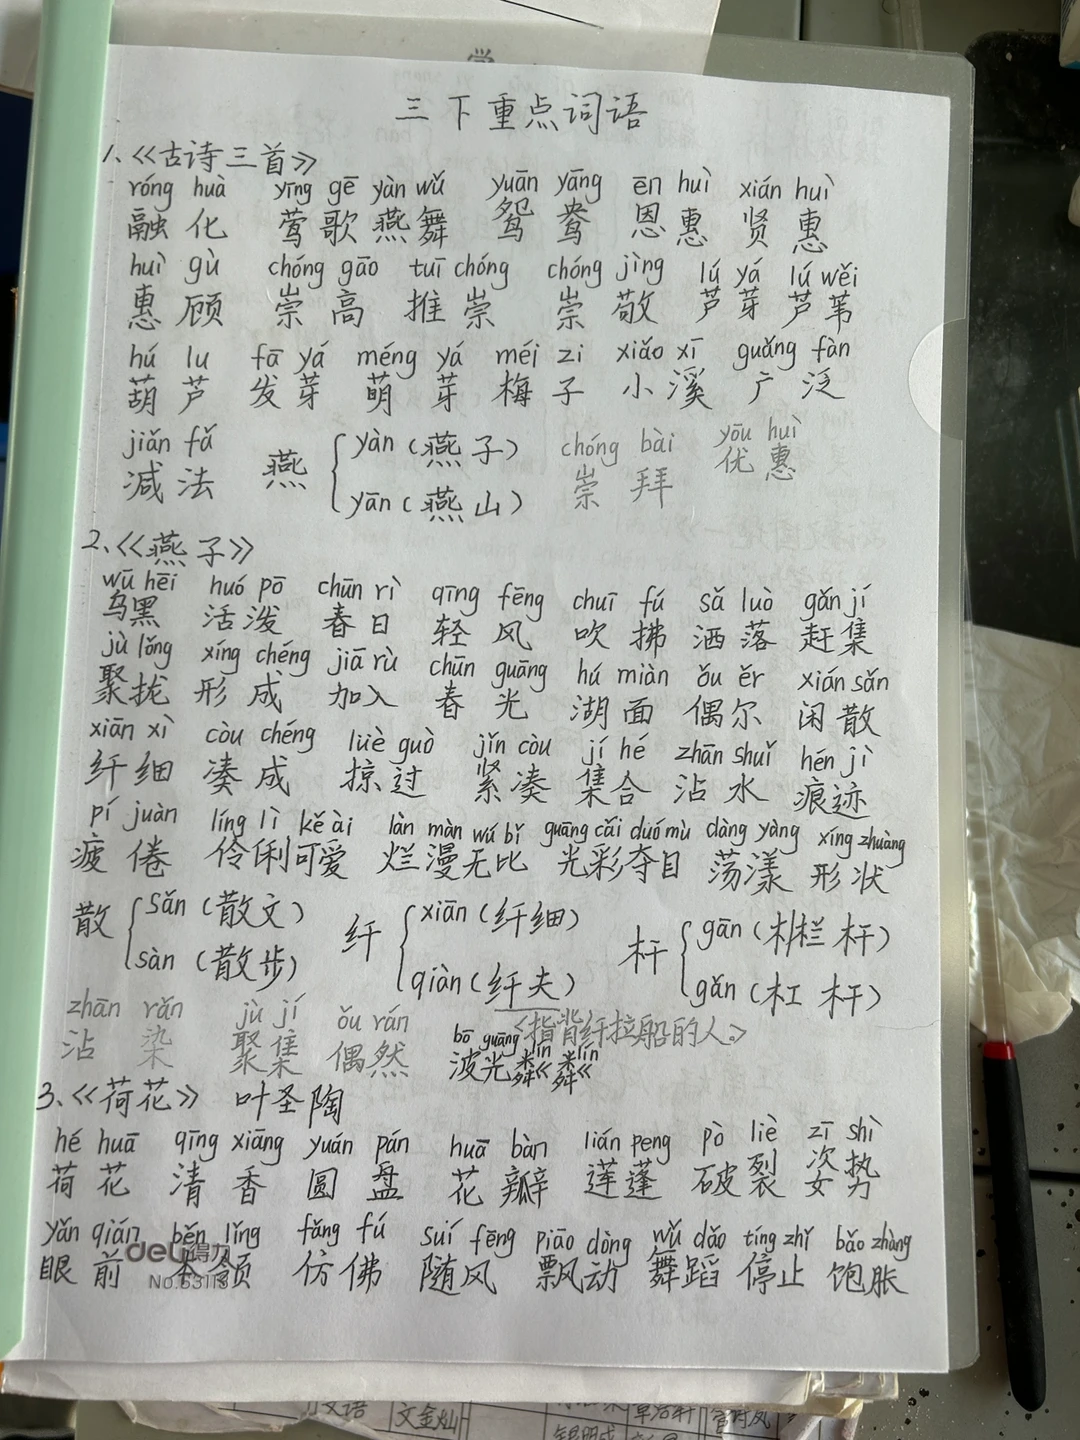 三下重点词语
1、《古诗三首》
róng huà yīng gē yàn wǔ yuān yāng ēn huì xián huì
融化 莺歌燕舞 鸳鸯 恩惠 贤惠
huì gù chóng gāo tuī chóng chóng jìng lú yá lú wěi
惠顾 崇高 推崇 崇敬 芦芽 芦苇
hú lu fā yá méng yá méi zi xiǎo xī guǎng fàn
葫芦 发芽 萌芽 梅子 小溪 广泛
jiǎn fǎ yàn (燕子) chóng bài yōu huì
减法 燕 yān (燕山) 崇拜 优惠
2、《燕子》
wū hēi huó pō chūn rì qīng fēng chuī fú sǎ luò gǎn jí
乌黑 活泼 春日 轻风 吹拂 洒落 赶集
jù lǒng xíng chéng jiā rù chūn guāng hú miàn ǒu ěr xián sǎn
聚拢 形成 加入 春光 湖面 偶尔 闲散
xiān xì còu chéng lüè guò jǐn còu jí hé zhān shuǐ hén jì
纤细 凑成 掠过 紧凑 集合 沾水 痕迹
pí juàn líng lì kě ài làn màn wú bǐ guāng cǎi duó mù dàng yàng xíng zhuàng
疲倦 伶俐可爱 烂漫无比 光彩夺目 荡漾 形状
散 sǎn (散文) 纤 xiān (纤细) 杆 gān (栏杆)
sàn (散步) qiàn (纤夫) gǎn (杠杆)
zhān rǎn jù jí ǒu rán <指背纤拉船的人。>
沾染 聚集 偶然 bō guāng lín lín
波光粼粼
3、《荷花》 叶圣陶
hé huā qīng xiāng yuán pán huā bàn lián peng pò liè zī shì
荷花 清香 圆盘 花瓣 莲蓬 破裂 姿势
yǎn qián běn lǐng fǎng fú suí fēng piāo dòng wǔ dǎo tíng zhǐ bǎo zhàng
眼前 本领 仿佛 随风 飘动 舞蹈 停止 饱胀
deli得力